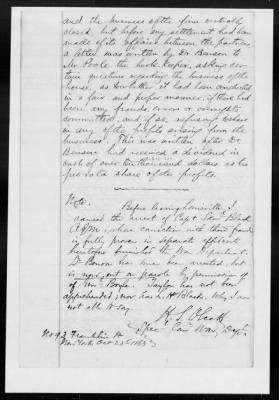 and the business of the firm virtually
closed, but before any settlement had been
made of its affairs between the partners
a letter was written by Dr. Benson to
Mr. Poole the book keeper, asking cer-
tain questions regarding the business of the
house, as to whether it had been conducted
in a fair and proper manner, if there had
been any frauds, errors or oversights
committed, and if so, refusing to share
in any of the profits arising from the
business. This was written after Dr.
Benson had received a dividend in
cash of over ten thousand dollars as his
pro rata share of the profits.
Note.
Before leaving Louisville I
caused the arrest of Capt. Black
A.Q.M., whose connection with these frauds
is fully proven in separate affidavit
heretofore furnished the War Department.
Dr. Benson has since been arrested, but
is now out on parole by permission of
of Mr. Boyle. Taylor has not been
apprehended; nor has L. H. Blacks. Why, I am
not able to say.
H. S. Olcott
Spec. Com. War Dept.
No 93 Franklin St
New York Oct 23rd 1863